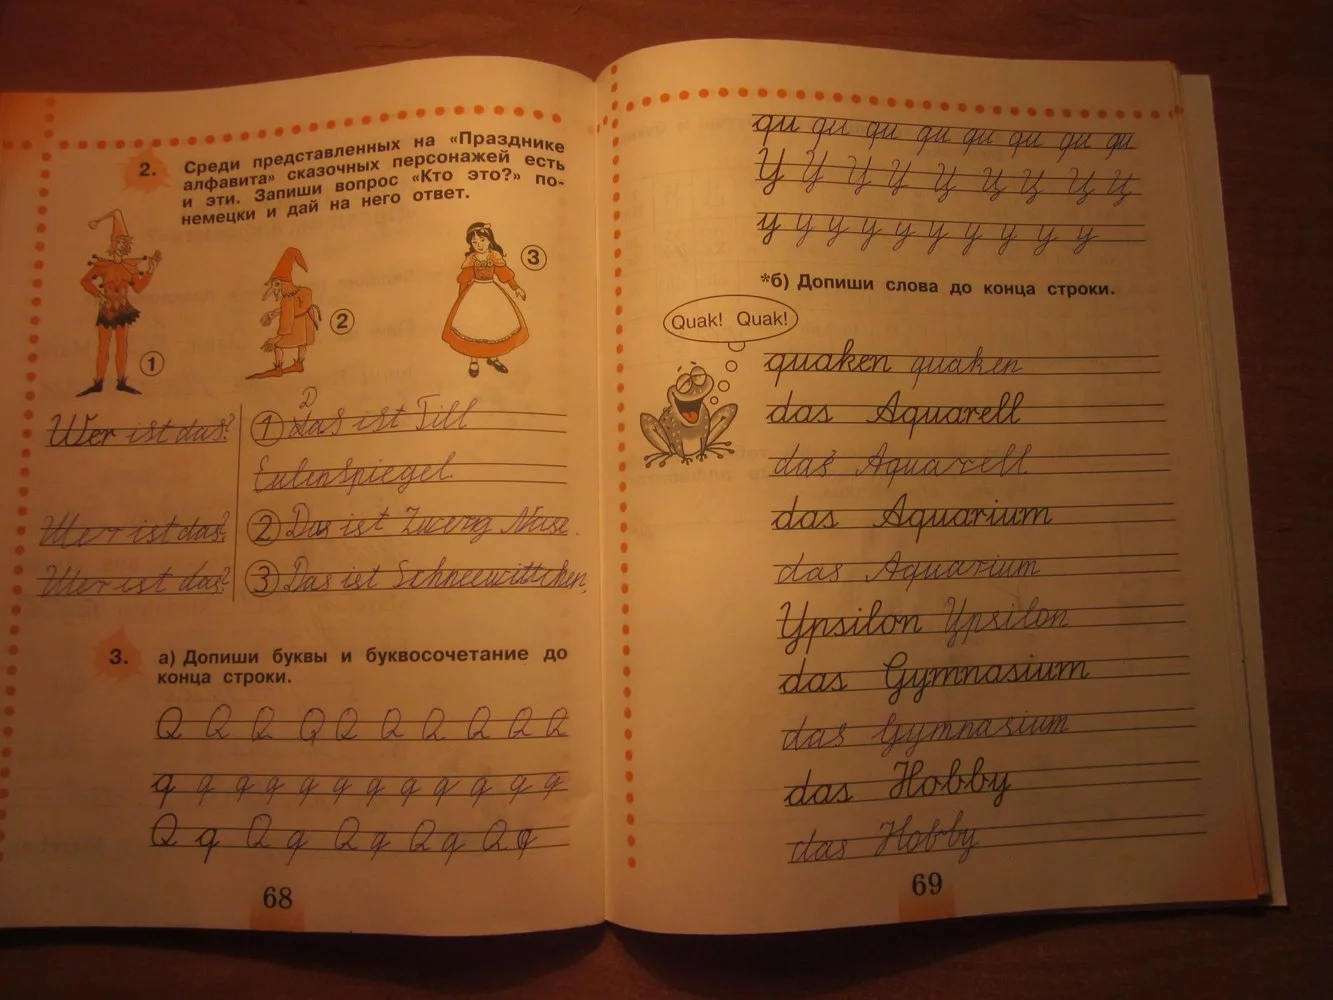 2. Среди представленных на «Празднике
алфавита» сказочных персонажей есть
и эти. Запиши вопрос «Кто это?» по-
немецки и дай на него ответ.
1
2
3
Wer ist das?
D
1 das ist Till
Eulenspiegel.
Wer ist das?
2 Das ist Zwerg Nase.
Wer ist das?
3 Das ist Schneewittchen.
3. а) Допиши буквы и буквосочетание до
конца строки.
Q Q Q Q Q Q Q Q Q Q
q q q q q q q q q q q q
Q q Q q Q q Q q Q q
68
qu qu qu qu qu qu qu qu
Y Y Y Y Y Y Y Y Y
y y y y y y y y y y
*б) Допиши слова до конца строки.
Quak! Quak!
quaken quaken
das Aquarell
das Aquarell
das Aquarium
das Aquarium
Ypsilon Ypsilon
das Gymnasium
das Gymnasium
das Hobby
das Hobby
69